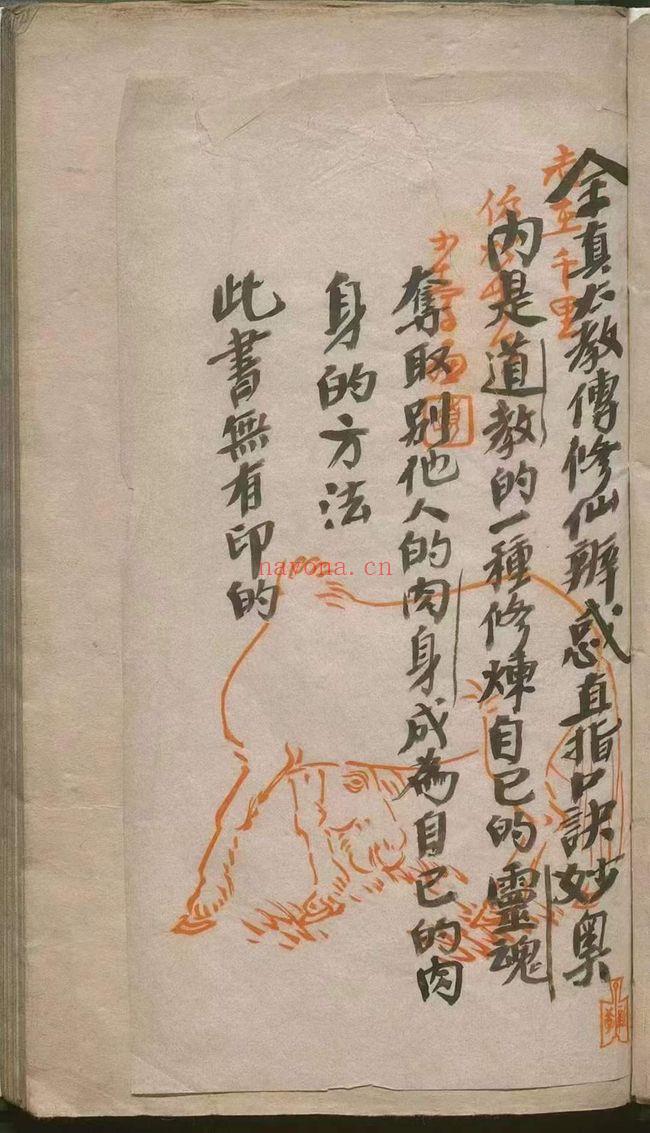 全真大教傳修仙辨惑直指口訣妙奧
千里
內是道教的一種修煉自己的靈魂
奪取別他人的肉身成為自己的肉
身的方法
此書無有印的
nayona.cn